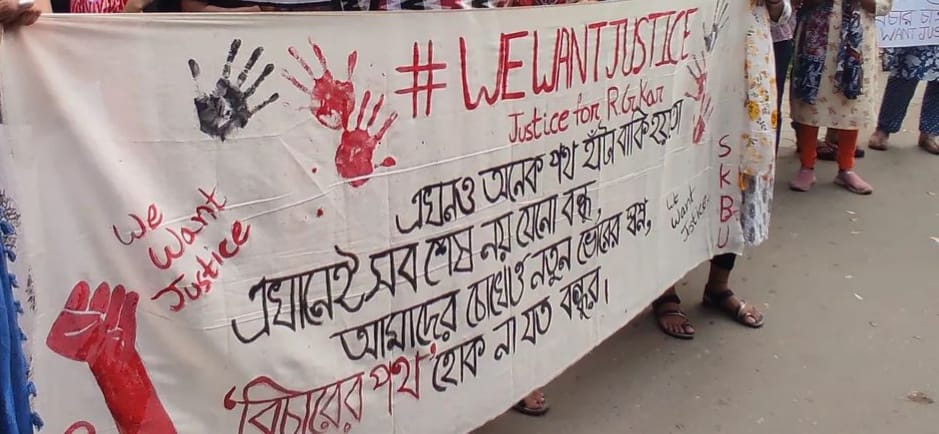 #WE WANT JUSTICE
Justice for RG Kar
এখনও অনেক পথ হাঁটা বাকি হয়তো
এখানেই সব শেষ নয় যেনো বন্ধু,
আমাদের চোখেও নতুন ভোরের স্বপ্ন,
'বিচারের পথ' হোক না যত বন্ধুর।
We
Want
Justice
SKBU
We
Want
Justice
বিচার চাই
WANT JUS